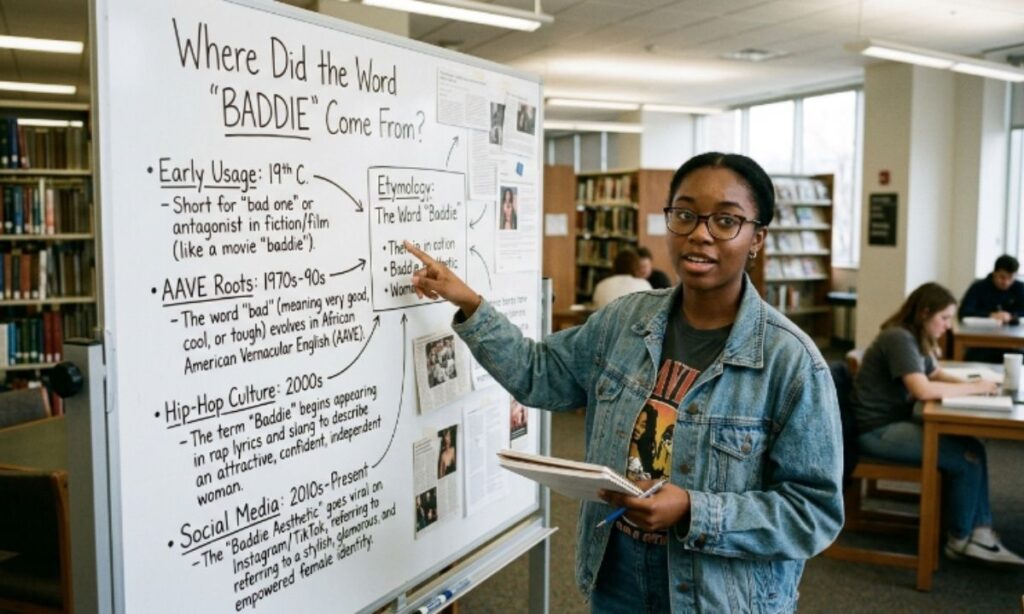 Where Did the Word
"BADDIE" Come From?
• Early Usage: 19th C.
– Short for "bad one" or
antagonist in fiction/film
(like a movie "baddie").
• AAVE Roots: 1970s-90s
– The word "bad" (meaning very good,
cool, or tough) evolves in African
American Vernacular English (AAVE).
• Hip-Hop Culture: 2000s
– The term "Baddie" begins appearing
in rap lyrics and slang to describe
an attractive, confident, independent
woman.
• Social Media: 2010s-Present
– The "Baddie Aesthetic" goes viral on
Instagram/TikTok, referring to
referring to a stylish, glamorous, and
empowered female identity.
Etymology:
The Word "Baddie"